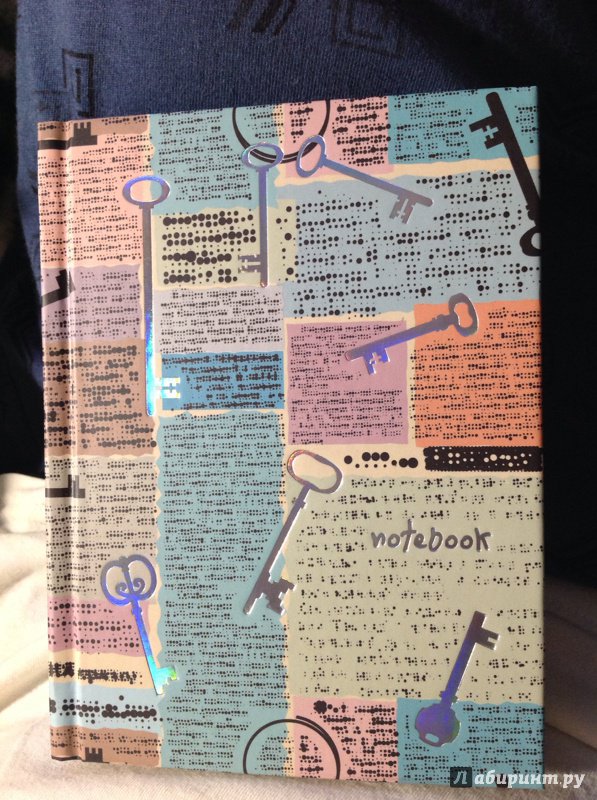 notebook
Лабиринт.ру